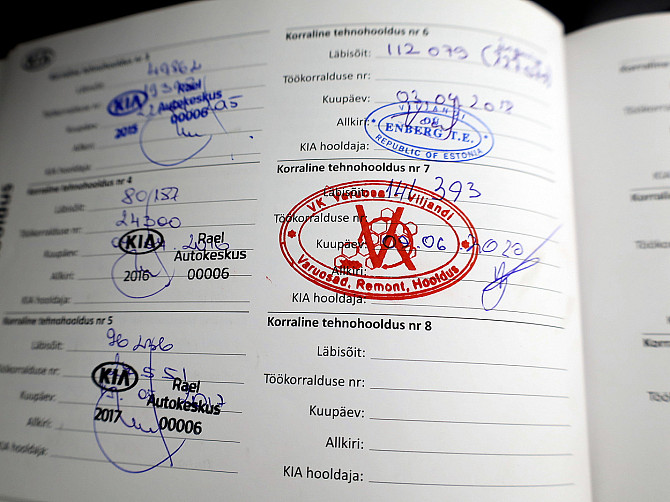 Korraline tehnohooldus nr 3
Läbisõit: 49862
Töökorralduse nr:
Kuupäev:
Allkiri:
KIA hooldaja:
KIA
2015
Rael
Autokeskus
00006
Korraline tehnohooldus nr 4
Läbisõit: 80 157
Töökorralduse nr: 24300
Kuupäev:
Allkiri:
KIA hooldaja:
KIA
2016
Rael
Autokeskus
00006
Korraline tehnohooldus nr 5
Läbisõit: 96 236
Töökorralduse nr:
Kuupäev:
Allkiri:
KIA hooldaja:
KIA
2017
Rael
Autokeskus
00006
Korraline tehnohooldus nr 6
Läbisõit: 112 079
Töökorralduse nr:
Kuupäev: 03.04.2018
Allkiri:
KIA hooldaja:
VILJANDI
ENBERG T.E.
REPUBLIC OF ESTONIA
Korraline tehnohooldus nr 7
Läbisõit: 141 393
Töökorralduse nr:
Kuupäev: 09.06.2020
Allkiri:
KIA hooldaja:
VK Varuosad Viljandi
VK
Varuosad, Remont, Hooldus
Korraline tehnohooldus nr 8
Läbisõit:
Töökorralduse nr:
Kuupäev:
Allkiri:
KIA hooldaja: